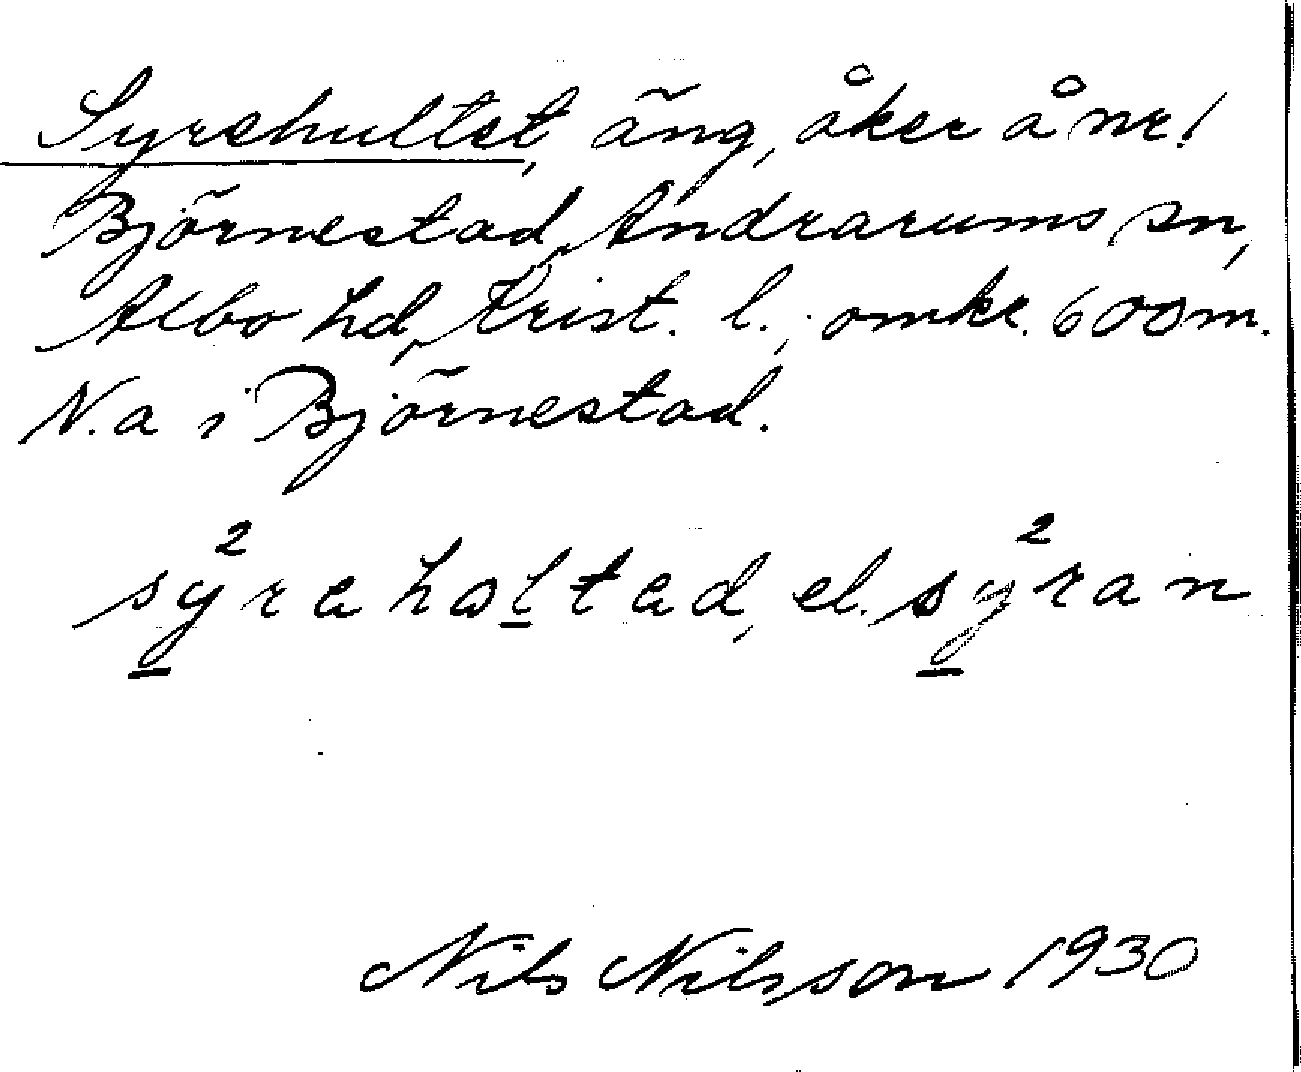 Syrehultet, äng, åker å nr 1
Björnestad, Andrarums sn,
Albo hd, Krist. l., omkr. 600 m.
N. a i Björnestad.
sy²rahaltad, el. sy²ran
Nils Nilsson 1930